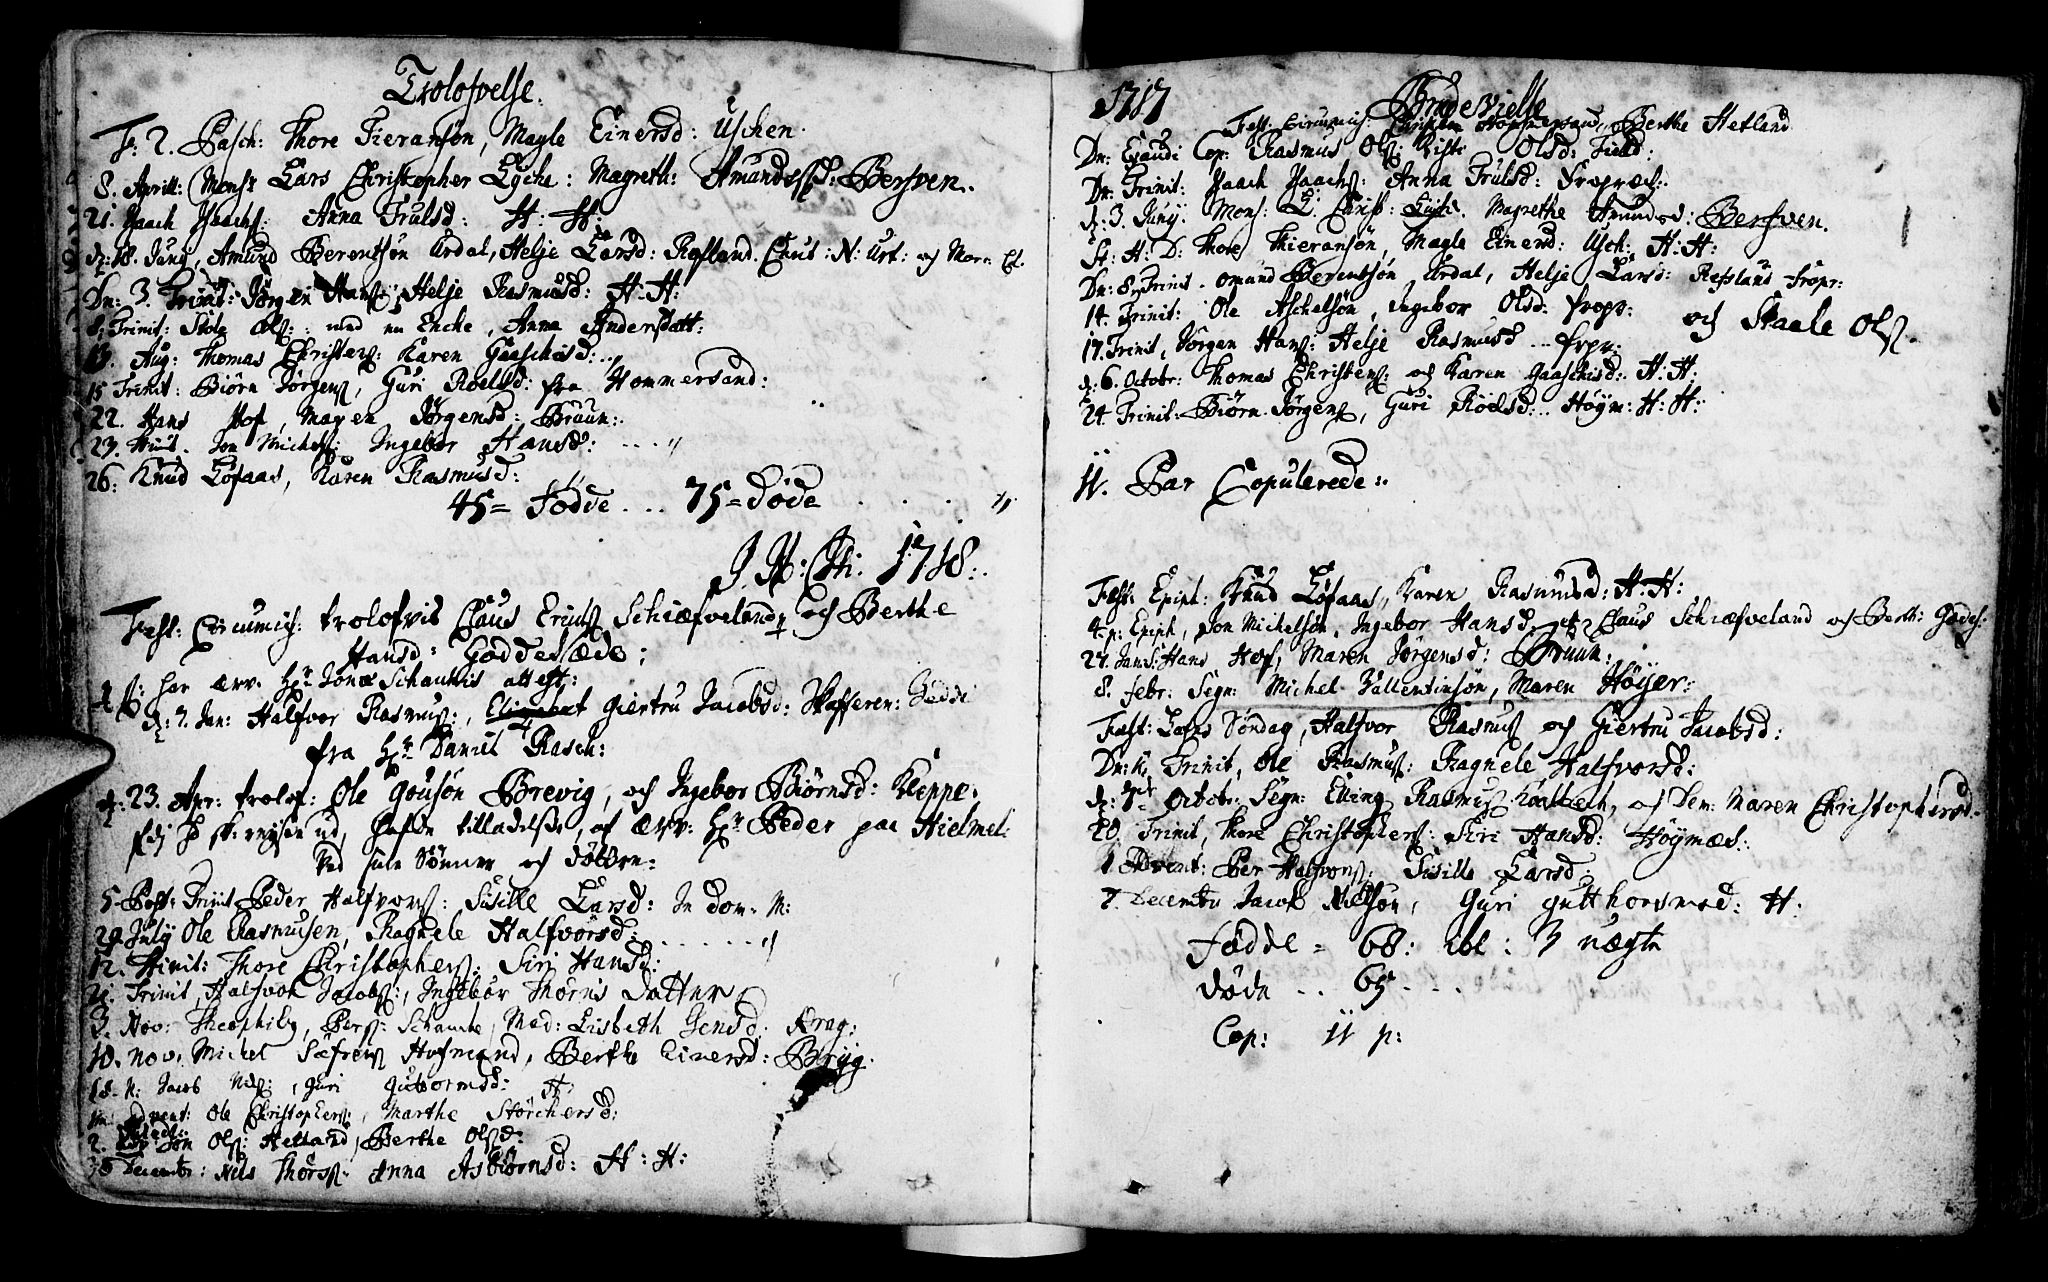 Trolofvelse.
F: 2. Pasch: Thore Tieransøn, Magle Einersd: Uschen.
8. Aprill: Monsr Lars Christopher Lyche: Magreth: Amundsd: Bersven.
21. Isach Isachs: Anna Trulsd: H: H:
d: 18. Junij, Amund Berentsøn Ârdal, Helje Larsd: Refland. Cnut: N: Urt: och Mor:
Dn: 3. Trinit: Jørgen Hans: Helje Rasmusd: H: H:
8: Trinit: Stole Ols: med en Encke, Anna Andersdatt:
Aug: Thomas Christens: Karen Gaaschisd:
15 Trinit: Biørn Jørgens, Guri Roelsd: fra Hommersand:
22. Hans Hof, Maren Jørgensd: Bruun:
23. Trinit. Jon Michels: Ingebor Hansd: ....
26: Knud Løfaas, Karen Rasmusd:
45 = Fødde ... 75 = døde . . . .
J. N: Chi: 1718:
Fest: Circumcis: trolofvis Claus Erichs Schiæfveland, och Berthe
Hansd: Goddesæde;
har ærv. Hr Jonæ Schanchis attest:
d: 2. Jan: Halfvor Rasmus:, Giertru Jacobsd: Skafferen:
fra Hr Daniel Rasch:
d: 23. Apr: trolof: Ole Gousøn Brevig, och Ingebor Biørnsd: Kleppe:
tilladelse, af ærv: Hr Peder paa Hielmel:
ved sine Sønner och døttre:
5. Post: Trinit Peder Halfvors: Sisille Larsd: In dom. N:
29 July Ole Rasmusen, Ragnele Halfvorsd: . . . . . .
12. Trinit: Thore Christophers: Siri Hansd:
21. Trinit, Halfvor Jacobs:, Ingebor Thoris Datter
3. Nov: Theophilus, Pers: Schancke, Mad: Lisbeth Jensd: Krag:
10. Nov. Michel Søfrens Hofmand, Berthe Einersd: Bryg.
18. N: Jacob Nils:, Guri Guttormsd: H:
Advent: Ole Christophers:, Marthe Storchersd:
2. Jon Ols: Hetland, Berthe Olsd:
Decembr: Nils Thorss: Anna Asbiørnsd: H: H:
1717 Brudevielse
Fest. Circumcis: Christen Hommersand, Berthe Hetland
Dn: Exaudi Cop: Rasmus Ols: Kisti Olsd: Field:
Dn: Trinit: Isach Isachs: Anna Trulsd: Propræt:
d: 3. Juny. Mons: L: Chris: Lyche. Magrethe Amundsd: Bersven.
St: H: D: Thore Thieransøn, Magle Einersd: Usch: H: H:
Dn: 8. Trinit. Omund Berentsøn, Ârdal, Helje Larsd: Refsland Propr:
14. Trinit: Ole Aschelsøn, Ingebor Olsd: propr: och Staale Ols.
17. Trinit, Jørgen Hans: Helje Rasmusd ... propr:
d: 6. Octobr: Thomas Christens: och Karen Gaaschisd: H: H:
24 Trinit: Biørn Jørgens, Guri Roelsd: Høym: H: H:
11. Par Copulerede:
Fest: Epiph: Knud Løfaas, Karen Rasmusd: H: H:
4. p: Epiph, Jon Michelsøn, Ingebor Hansd. et Claus Schiæfveland och Berth: Godes:
27. Jan: Hans Hof, Maren Jørgensd: Bruun:
8. febr: Segn: Michel Vallentinsøn, Maren Høyer:
Fest: Søndag, Halfvor Rasmus och Giertru Jacobsd:
Dn: Trinit, Ole Rasmus: Ragnele Halfvorsd:
d: Octobr: Segn: Elling Rasmus, och Dem: Maren Christophersd:
20. Trinit, Thore Christophers: Siri Hansd: Høymæs:
1 Advent: Per Halfvors: Sisille Larsd:
7. Decembr Jacob Nielsøn, Guri Gutthormsd: H:
Fødde = 68: ibl: 3 uægte
Døde ... 65 ....
Cop: 11 p: